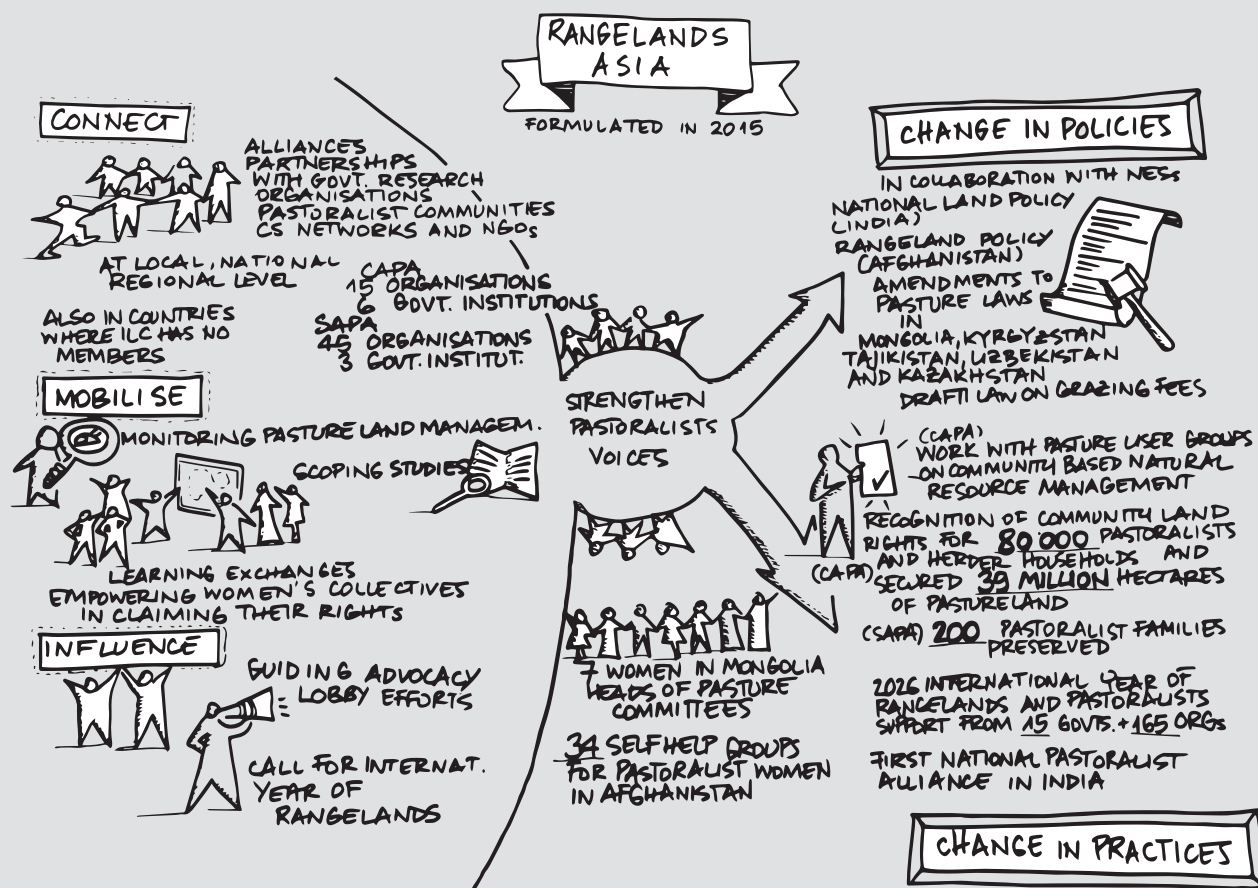 RANGELANDS
ASIA
FORMULATED IN 2015
CONNECT
ALLIANCES
PARTNERSHIPS
WITH GOVT. RESEARCH
ORGANISATIONS
PASTORALIST COMMUNITIES
CS NETWORKS AND NGOs
AT LOCAL, NATIONAL
REGIONAL LEVEL
CAPA
15 ORGANISATIONS
6 GOVT. INSTITUTIONS
SAPA
45 ORGANISATIONS
3 GOVT. INSTITUT.
ALSO IN COUNTRIES
WHERE ILC HAS NO
MEMBERS
MOBILISE
MONITORING PASTURE LAND MANAGEM.
SCOPING STUDIES
LEARNING EXCHANGES
EMPOWERING WOMEN'S COLLECTIVES
IN CLAIMING THEIR RIGHTS
INFLUENCE
GUIDING ADVOCACY
LOBBY EFFORTS
CALL FOR INTERNAT.
YEAR OF
RANGELANDS
STRENGTHEN
PASTORALISTS
VOICES
7 WOMEN IN MONGOLIA
HEADS OF PASTURE
COMMITTEES
34 SELFHELP GROUPS
FOR PASTORALIST WOMEN
IN AFGHANISTAN
CHANGE IN POLICIES
IN COLLABORATION WITH NESs
NATIONAL LAND POLICY
(INDIA)
RANGELAND POLICY
(AFGHANISTAN)
AMENDMENTS TO
PASTURE LAWS
IN
MONGOLIA, KYRGYZSTAN
TAJIKISTAN, UZBEKISTAN
AND KAZAKHSTAN
DRAFT LAW ON GRAZING FEES
(CAPA)
WORK WITH PASTURE USER GROUPS
ON COMMUNITY BASED NATURAL
RESOURCE MANAGEMENT
RECOGNITION OF COMMUNITY LAND
RIGHTS FOR 80'000 PASTORALISTS
AND HERDER HOUSEHOLDS AND
(CAPA) SECURED 39 MILLION HECTARES
OF PASTURELAND
(SAPA) 200 PASTORALIST FAMILIES
PRESERVED
2026 INTERNATIONAL YEAR OF
RANGELANDS AND PASTORALISTS
SUPPORT FROM 15 GOVTS. + 165 ORGs
FIRST NATIONAL PASTORALIST
ALLIANCE IN INDIA
CHANGE IN PRACTICES